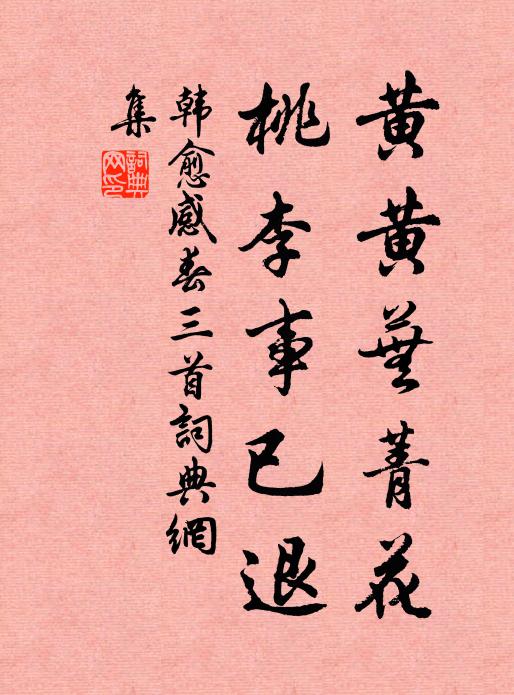 黄黄蕪菁花
桃李事已退
韩愈感春三首詞典網
集
詞典
网印